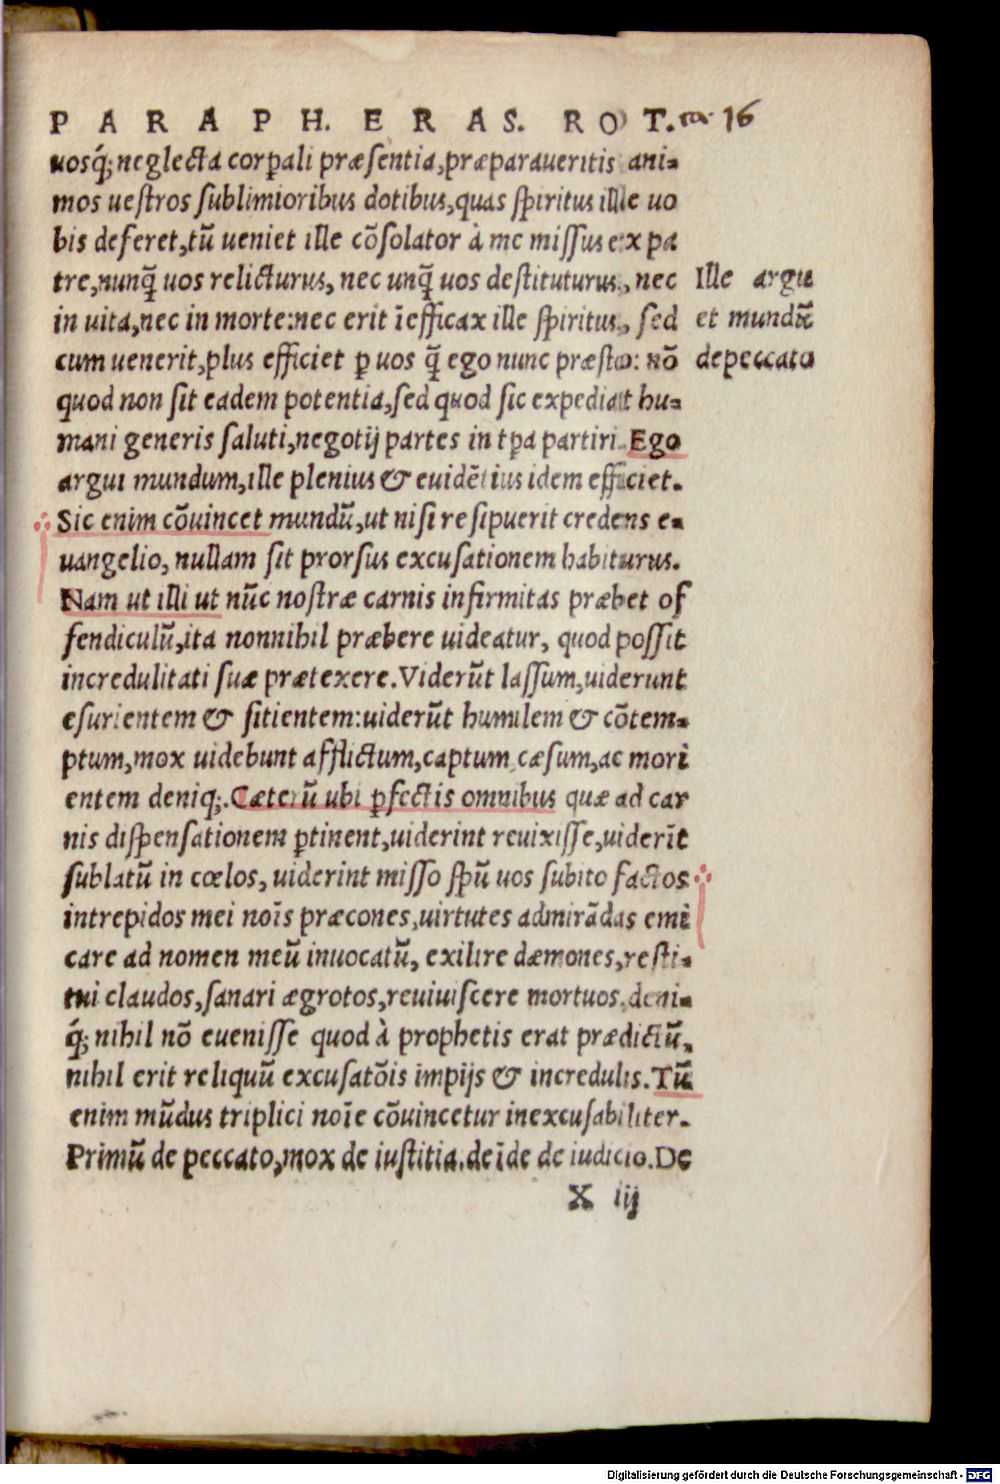 PARAPH. ERAS. ROT. ca. 16
uosq́; neglecta corꝑali præsentia, præparaueritis ani-
mos uestros sublimioribus dotibus, quas spiritus ille uo
bis deferet, tũ ueniet ille cõsolator à me missus ex pa
tre, nunq̃ uos relicturus, nec unq̃ uos destituturus, nec
Ille argu
in uita, nec in morte: nec erit ĩefficax ille spiritus, sed
et mundũ
cum uenerit, plus efficiet ꝑ uos q̃ ego nunc præsto: nõ
de peccato
quod non sit eadem potentia, sed quod sic expediat hu-
mani generis saluti, negotij partes in tꝑa partiri. Ego
argui mundum, ille plenius & euidẽtius idem efficiet.
Sic enim cõuincet mundũ, ut nisi resipuerit credens e-
uangelio, nullam sit prorsus excusationem habiturus.
Nam ut illi ut nũc nostræ carnis infirmitas præbet of
fendiculũ, ita nonnihil præbere uideatur, quod possit
incredulitati suæ prætexere. Viderũt lassum, uiderunt
esurientem & sitientem: uiderũt humilem & cõtem-
ptum, mox uidebunt afflictum, captum, cæsum, ac mori
entem deniq́;. Cæterũ ubi ꝑfectis omnibus quæ ad car
nis dispensationem ꝑtinent, uiderint reuixisse, uiderĩt
sublatũ in cœlos, uiderint misso spũ uos subito factos
intrepidos mei noĩs præcones, uirtutes admirãdas emi
care ad nomen meũ inuocatũ, exilire dæmones, resti-
tui claudos, sanari ægrotos, reuiuiscere mortuos, deni-
q́; nihil nõ euenisse quod à prophetis erat prædictũ,
nihil erit reliquũ excusatõis impijs & incredulis. Tũ
enim mũdus triplici noĩe cõuincetur inexcusabiliter.
Primũ de peccato, mox de iustitia, deĩde de iudicio. De
X iij
Digitalisierung gefördert durch die Deutsche Forschungsgemeinschaft - DFG